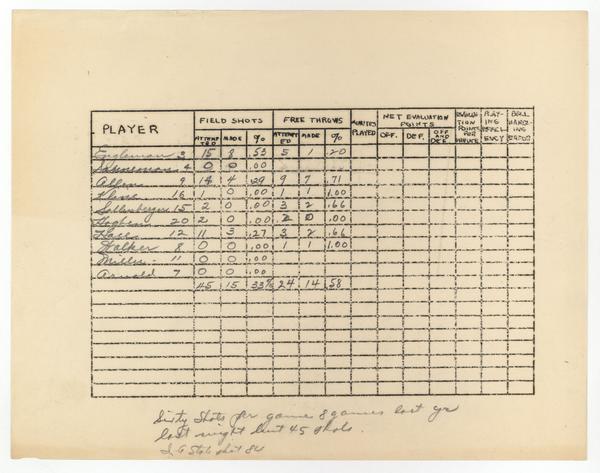 PLAYER FIELD SHOTS FREE THROWS MINUTES PLAYED NET EVALUATION POINTS EVALUATION POINTS PER MINUTE PLAYING EFFICIENCY BALL HANDLING ERROR
ATTEMPTED MADE % ATTEMPTED MADE % OFF. DEF. OFF AND DEF.
Engleman 3 15 8 .53 5 1 .20
4 0 0 .00
Allen 9 14 4 .29 9 7 .71
Kline 16 1 0 .00 1 1 1.00
Sollenberger 15 2 0 .00 3 2 .66
Hogben 20 2 0 .00 2 0 .00
Hall 12 11 3 .27 3 2 .66
Walker 8 0 0 .00 1 1 1.00
Miller 11 0 0 .00
Arnold 7 0 0 .00
45 15 33% 24 14 .58
Sixty shots per game 8 games last yr
last night but 45 shots.
State shot 84